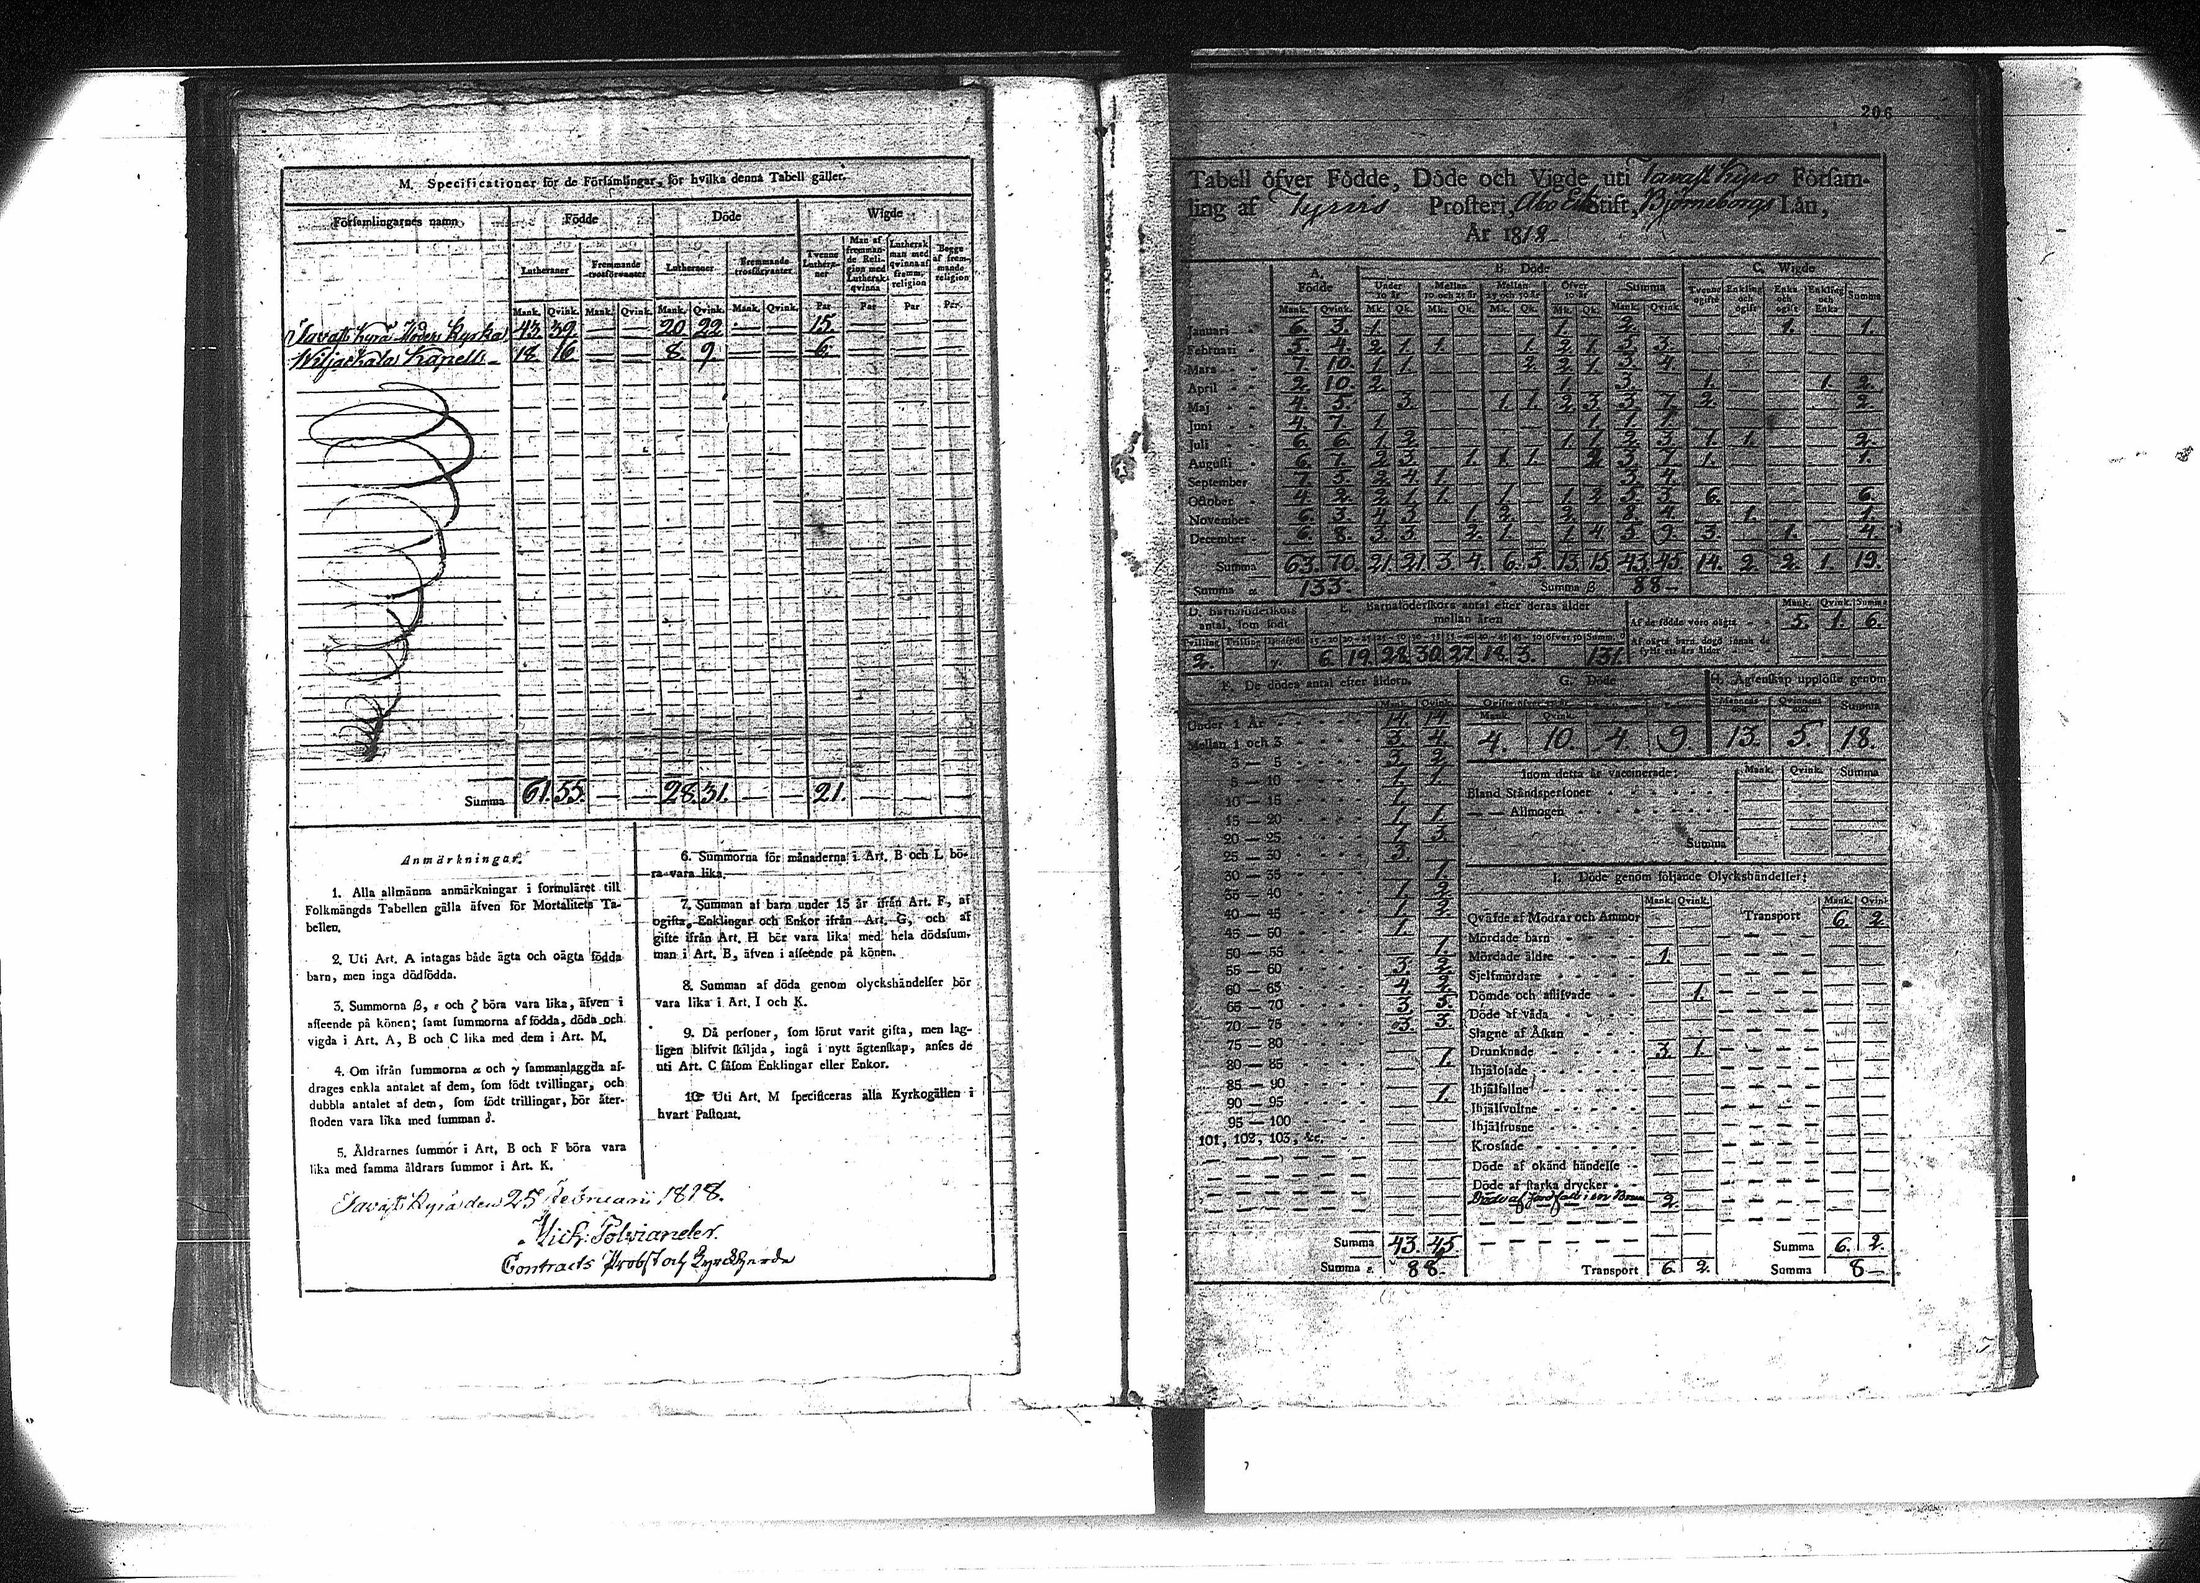 M. Specificationer för de Församlingar, för hvilka denna Tabell gäller.
Församlingarnes namn. Födde Döde Wigde
Lutheraner Fremmande trosförvanter Lutheraner Fremmande trosförvanter Tvenne Lutheraner Man af fremmande Religion med Luthersk qvinna Luthersk man med qvinna af fremm. religion Begge af fremmande religion
Mank. Qvink. Mank. Qvink. Mank. Qvink. Mank. Qvink. Par Par Par Par.
Tavast Kyrö Moder Kyrka 43. 39. — — 20. 22. — — 15. — — —
Wiljackala Kapell 18 16 — — 8. 9. — — 6. — — —
Summa 61. 55. — — 28. 31. — — 21. — — —
Anmärkningar.
1. Alla allmänna anmärkningar i formuläret till
Folkmängds Tabellen gälla äfven för Mortalitets Ta-
bellen.
2. Uti Art. A intagas både ägta och oägta födda
barn, men inga dödfödda.
3. Summorna β, ε och ζ böra vara lika, äfven i
afseende på könen; samt summorna af födda, döda och
vigda i Art. A, B och C lika med dem i Art. M.
4. Om ifrån summorna α och γ sammanlaggda af-
drages enkla antalet af dem, som födt tvillingar, och
dubbla antalet af dem, som födt trillingar, bör åter-
stoden vara lika med summan δ.
5. Åldrarnes summor i Art. B och F böra vara
lika med samma åldrars summor i Art. K.
6. Summorna för månaderna i Art. B och L bö-
ra vara lika.
7. Summan af barn under 15 år ifrån Art. F, af
ogifta, Enklingar och Enkor ifrån Art. G, och af
gifte ifrån Art. H bör vara lika med hela dödssum-
man i Art. B, äfven i afseende på könen.
8. Summan af döda genom olyckshändelser bör
vara lika i Art. I och K.
9. Då personer, som förut varit gifta, men lag-
ligen blifvit skiljda, ingå i nytt ägtenskap, anses de
uti Art. C såsom Enklingar eller Enkor.
10. Uti Art. M specificeras alla Kyrkogällen i
hvart Pastorat.
Tavast Kyrö den 25 Februarii 1818.
Mich: Polviander.
Contracts Probst och Kyrckherde
206
Tabell öfver Födde, Döde och Vigde uti Tavast Kyro Försam-
ling af Tyrvis Prosteri, Åbo Erke Stift, Björneborgs Län,
År 1818
A. Födde B. Döde C. Wigde
Under 10 år Mellan 10 och 25 år Mellan 25 och 50 år Öfver 50 år Summa Tvenne ogifte Enkling och ogift Enka och ogift Enkling och Enka Summa
Mank. Qvink. Mk. Qk. Mk. Qk. Mk. Qk. Mk. Qk. Mank. Qvink.
Januari 6. 3. 1. 1. 2. 1. 1.
Februari 5. 4. 2. 1. 1. 1. 2. 1. 5. 3.
Mars 7. 10. 1. 1. 2. 2. 1. 3. 4.
April 2. 10. 2. 1. 3. 1. 1. 2.
Maj 4. 5. 3. 1. 1. 2. 3. 3. 7. 2. 2.
Juni 4. 7. 1. 1. 1. 1.
Juli 6. 6. 1. 2. 1. 1. 2. 3. 1. 1. 2.
Augusti 6. 7. 2. 3. 1. 1. 1. 2. 3. 7. 1. 1.
September 7. 5. 2. 4. 1. 3. 4.
October 4. 2. 2. 1. 1. 1. 1. 2. 5. 3. 6. 6.
November 6. 3. 4. 3. 1. 2. 2. 8. 4. 1. 1.
December 6. 8. 3. 3. 2. 1. 1. 4. 5. 9. 3. 1. 4.
Summa 63. 70. 21. 21. 3. 4. 6. 5. 13. 15. 43. 45. 14. 2. 2. 1. 19.
Summa α 133. Summa β 88
D. Barnaföderskors antal, som födt
Tvilling Trilling Dödfödde
2.
E. Barnaföderskors antal efter deras ålder mellan åren
15-20 20-25 25-30 30-35 35-40 40-45 45-50 öfver 50 Summ. δ
6. 19. 28. 30. 27. 18. 3. 131.
Mank. Qvink. Summa
Af de födde voro oägta 5. 1. 6.
Af oägta barn dogo innan de
fyllt ett års ålder — — —
F. De dödes antal efter åldern.
Mank. Qvink.
Under 1 År 14. 14.
Mellan 1 och 3 3. 4.
3 — 5 3. 2.
5 — 10 1. 1.
10 — 15 1.
15 — 20 1. 1.
20 — 25 1. 3.
25 — 30 3.
30 — 35 1.
35 — 40 1. 2.
40 — 45 1. 2.
45 — 50 1.
50 — 55 1.
55 — 60 3. 2.
60 — 65 4. 2.
65 — 70 3. 5.
70 — 75 3. 3.
75 — 80
80 — 85 1.
85 — 90
90 — 95 1.
95 — 100
101, 102, 103, &c.
Summa 43. 45.
Summa ε. 88
G. Döde
4. 10. 4 9
H. Ägtenskap upplöste genom
Mannens död Qvinnans död Summa
13. 5. 18.
Inom detta år vaccinerade: Mank. Qvink. Summa
Bland Ståndspersoner
— — Allmogen
Summa
I. Döde genom följande Olyckshändelser:
Mank. Qvink. Mank. Qvink
Qväfde af Mödrar och Ammor Transport 6. 2.
Mördade barn
Mördade äldre 1.
Sjelfmördare
Dömde och aflifvade 1.
Döde af våda
Slagne af Åskan
Drunknade 3. 1.
Ihjälosade
Ihjälfallne
Ihjälsvultne
Ihjälfrusne
Krossade
Döde af okänd händelse
Döde af starka drycker
Döde af Jordfall i en Brunn 2.
Summa 6. 2.
Transport 6. 2. Summa 8